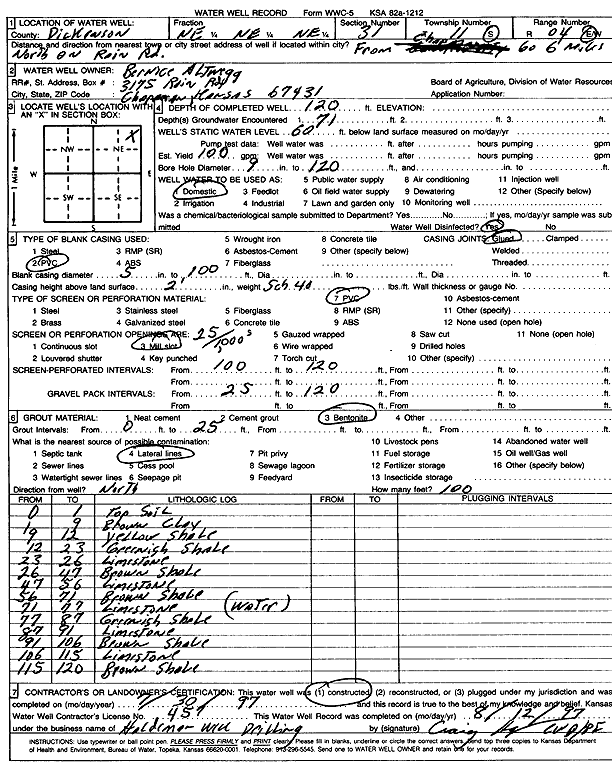 WATER WELL RECORD Form WWC-5 KSA 82a-1212
1 LOCATION OF WATER WELL: Fraction Section Number Township Number Range Number
County: Dickinson NE ¼ NE ¼ NE ¼ 31 T 11 S R 04 E/W
Distance and direction from nearest town or city street address of well if located within city? From Chap go 6 Miles
North on Rain Rd.
2 WATER WELL OWNER: Bernice Altwegg
RR#, St. Address, Box # : 3175 Rain Rd Board of Agriculture, Division of Water Resources
City, State, ZIP Code : Chapman Kansas 67431 Application Number:
3 LOCATE WELL'S LOCATION WITH AN "X" IN SECTION BOX:
N
NW NE X
W E
SW SE
S
1 Mile
4 DEPTH OF COMPLETED WELL 120 ft. ELEVATION:
Depth(s) Groundwater Encountered 1. 71 ft. 2. ft. 3. ft.
WELL'S STATIC WATER LEVEL 60 ft. below land surface measured on mo/day/yr
Pump test data: Well water was ft. after hours pumping gpm
Est. Yield 100 gpm: Well water was ft. after hours pumping gpm
Bore Hole Diameter 9 in. to 120 ft., and in. to ft.
WELL WATER TO BE USED AS: 5 Public water supply 8 Air conditioning 11 Injection well
1 Domestic 3 Feedlot 6 Oil field water supply 9 Dewatering 12 Other (Specify below)
2 Irrigation 4 Industrial 7 Lawn and garden only 10 Monitoring well
Was a chemical/bacteriological sample submitted to Department? Yes No ; If yes, mo/day/yr sample was submitted
Water Well Disinfected? Yes No
5 TYPE OF BLANK CASING USED: 5 Wrought iron 8 Concrete tile CASING JOINTS: Glued Clamped
1 Steel 3 RMP (SR) 6 Asbestos-Cement 9 Other (specify below) Welded
2 PVC 4 ABS 7 Fiberglass Threaded.
Blank casing diameter 5 in. to 100 ft., Dia in. to ft., Dia in. to ft.
Casing height above land surface 2' in., weight Sch 40 lbs./ft. Wall thickness or gauge No.
TYPE OF SCREEN OR PERFORATION MATERIAL: 7 PVC 10 Asbestos-cement
1 Steel 3 Stainless steel 5 Fiberglass 8 RMP (SR) 11 Other (specify)
2 Brass 4 Galvanized steel 6 Concrete tile 9 ABS 12 None used (open hole)
SCREEN OR PERFORATION OPENINGS ARE: 25/1000's 5 Gauzed wrapped 8 Saw cut 11 None (open hole)
1 Continuous slot 3 Mill slot 6 Wire wrapped 9 Drilled holes
2 Louvered shutter 4 Key punched 7 Torch cut 10 Other (specify)
SCREEN-PERFORATED INTERVALS: From 100 ft. to 120 ft., From ft. to ft.
From ft. to ft., From ft. to ft.
GRAVEL PACK INTERVALS: From 25 ft. to 120 ft., From ft. to ft.
From ft. to ft., From ft. to ft.
6 GROUT MATERIAL: 1 Neat cement 2 Cement grout 3 Bentonite 4 Other
Grout Intervals: From 0 ft. to 25 ft., From ft. to ft., From ft. to ft.
What is the nearest source of possible contamination: 10 Livestock pens 14 Abandoned water well
1 Septic tank 4 Lateral lines 7 Pit privy 11 Fuel storage 15 Oil well/Gas well
2 Sewer lines 5 Cess pool 8 Sewage lagoon 12 Fertilizer storage 16 Other (specify below)
3 Watertight sewer lines 6 Seepage pit 9 Feedyard 13 Insecticide storage
Direction from well? North How many feet? 100
FROM TO LITHOLOGIC LOG FROM TO PLUGGING INTERVALS
0 1 Top Soil
1 9 Brown Clay
9 12 Yellow Shale
12 23 Greenish Shale
23 26 Limestone
26 47 Brown Shale
47 56 Limestone
56 71 Brown Shale
71 77 Limestone (Water)
77 87 Greenish Shale
87 91 Limestone
91 106 Brown Shale
106 115 Limestone
115 120 Brown Shale
7 CONTRACTOR'S OR LANDOWNER'S CERTIFICATION: This water well was (1) constructed, (2) reconstructed, or (3) plugged under my jurisdiction and was
completed on (mo/day/year) 7/30/97 and this record is true to the best of my knowledge and belief. Kansas
Water Well Contractor's License No. 451 This Water Well Record was completed on (mo/day/yr) 8/12/97
under the business name of Haldeman Well Drilling by (signature) Craig
INSTRUCTIONS: Use typewriter or ball point pen. PLEASE PRESS FIRMLY and PRINT clearly. Please fill in blanks, underline or circle the correct answers. Send top three copies to Kansas Department
of Health and Environment, Bureau of Water, Topeka, Kansas 66620-0001. Telephone: 913-296-5545. Send one to WATER WELL OWNER and retain one for your records.